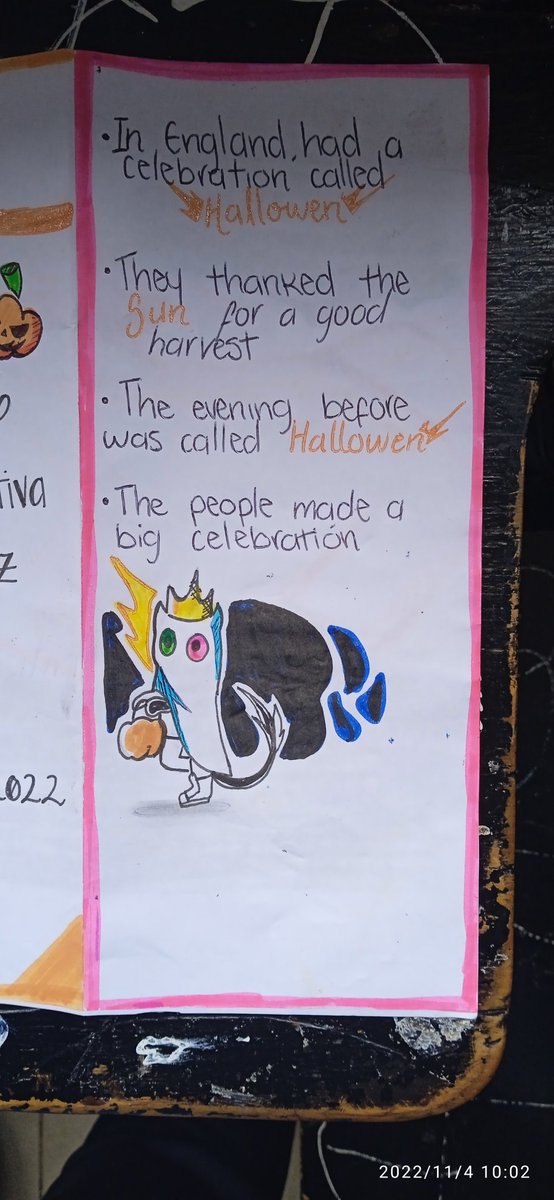 • In England, had a
celebration called
Hallowen
• They thanked the
Sun for a good
harvest
• The evening before
was called Hallowen
• The people made a
big celebratión
tiva
z
2022
2022/11/4 10:02